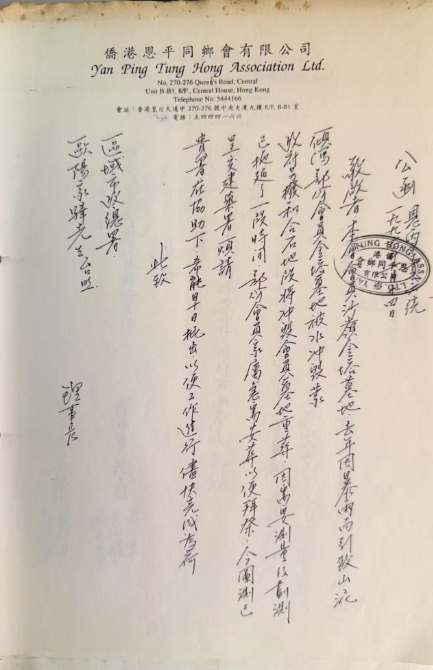 僑港恩平同鄉會有限公司
Yan Ping Tung Hong Association Ltd.
No. 270-276 Queen's Road, Central
Unit B-B1, 8/F., Central House, Hong Kong
Telephone No. 5444166
會址：香港皇后大道中 270-276 號中央大厦九樓 8/F, B-B1 室
電話：五四四四一六六
公函 恩內 號
一九九 四日
敬啟者本會 沙嶺金塔墓地去年因暴雨而引致山泥
傾瀉部份會員金塔墓地被水冲毁蒙
政府另撥和合石地段將冲毁會員墓地重葬因需要測量及劃測
已拖延了一段時間部份會員家屬急需安葬以便拜祭，今圖測已
呈交建築署煩請
貴署在協助下希能早日批出以便工作進行儘快完成為荷
此致
區域市政總署
歐陽 先生台照
理事長